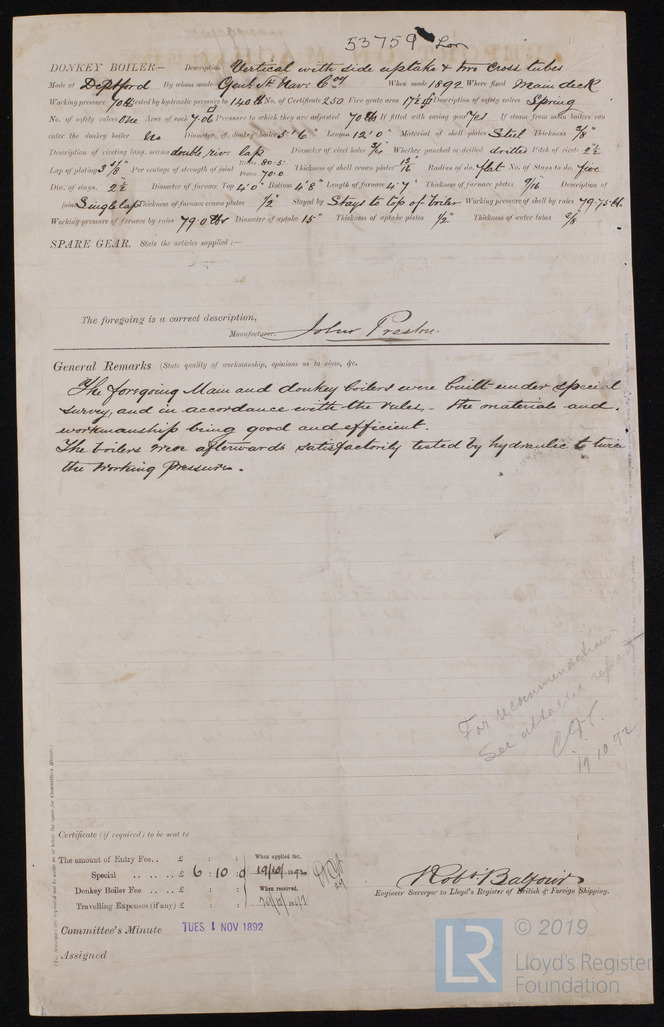 53759 Lon
DONKEY BOILER— Description Vertical with side uptake & two cross tubes
Made at Deptford By whom made Genl. St. Nav. Coy When made 1892 Where fixed Main deck
Working pressure 70 lb tested by hydraulic pressure to 140 lb No. of Certificate 250 Fire grate area 17½ Description of safety valves Spring
No. of safety valves One Area of each 7.0 Pressure to which they are adjusted 70 lbs If fitted with easing gear Yes If steam from main boilers can
enter the donkey boiler No Diameter of donkey boiler 5' 6" Length 12' 0" Material of shell plates Steel Thickness
Description of riveting long. seams double riv. lap Diameter of rivet holes Whether punched or drilled drilled Pitch of rivets 2½
Lap of plating Per centage of strength of joint Rivets 80.5 Plates 70.0 Thickness of shell crown plates Radius of do. flat No. of Stays to do. five
Dia. of stays. 2½" Diameter of furnace Top 4' 0" Bottom 4' 8" Length of furnace 4' 7" Thickness of furnace plates 9/16 Description of
joint Single lap Thickness of furnace crown plates ½" Stayed by Stays to top of boiler Working pressure of shell by rules 79.75 lb.
Working pressure of furnace by rules 79.0 lbs Diameter of uptake 15" Thickness of uptake plates ½" Thickness of water tubes
SPARE GEAR. State the articles supplied :—
The foregoing is a correct description,
Manufacturer. John Preston.
General Remarks (State quality of workmanship, opinions as to class, &c.
The foregoing Main and donkey boilers were built under special
survey, and in accordance with the rules, - the materials and
workmanship being good and efficient.
The boilers were afterwards satisfactorily tested by hydraulic to twice
the working pressure.
For recommendation
See attached report
19.10.92
Certificate (if required) to be sent to
The amount of Entry Fee.. £ : : When applied for,
Special .. .. .. £ 6 : 10 : 0 19/10/1892
Donkey Boiler Fee .. .. .. £ : : When received,
Travelling Expenses (if any) £ : :
Robt. Balfour
Engineer Surveyor to Lloyd's Register of British & Foreign Shipping.
Committee's Minute TUES 1 NOV 1892
Assigned
LR © 2019
Lloyd's Register
Foundation